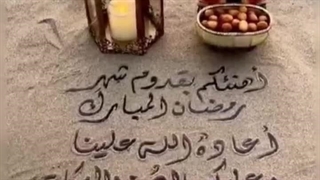 أهنئكم بقدوم شهر
رمضان المبارك
أعادة الله علينا
وعليكم